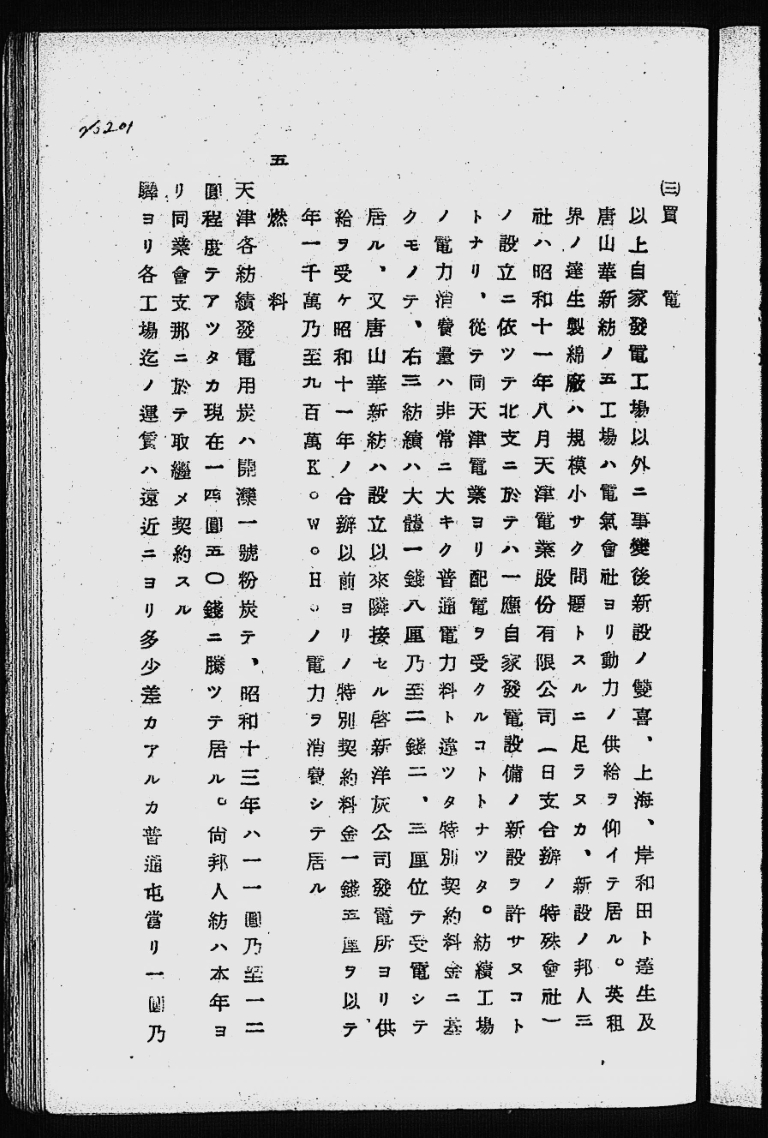 ㈢買電
以上自家發電工場以外ニ事變後新設ノ雙喜、上海、岸和田ト達生及
唐山華新紡ノ五工場ハ電氣會社ヨリ動力ノ供給ヲ仰イテ居ル。英租
界ノ達生製綿廠ハ規模小サク問題トスルニ足ラヌカ、新設ノ邦人三
社ハ昭和十一年八月天津電業股份有限公司(日支合辦ノ特殊會社)
ノ設立ニ依ツテ北支ニ於テハ一應自家發電設備ノ新設ヲ許サヌコト
トナリ、從テ同天津電業ヨリ配電ヲ受クルコトトナツタ。紡績工場
ノ電力消費量ハ非常ニ大キク普通電力料ト違ツタ特別契約料金ニ基
クモノテ、右三紡績ハ大體一錢八厘乃至二錢二、三厘位テ受電シテ
居ル、又唐山華新紡ハ設立以來隣接セル啓新洋灰公司發電所ヨリ供
給ヲ受ケ昭和十一年ノ合辦以前ヨリノ特別契約料金一錢五厘ヲ以テ
年一千萬乃至九百萬K。W。H。ノ電力ヲ消費シテ居ル
五 燃料
天津各紡績發電用炭ハ開灤一號粉炭テ、昭和十三年ハ一一圓乃至一二
圓程度テアツタカ現在一四圓五〇錢ニ騰ツテ居ル。尙邦人紡ハ本年ヨ
リ同業會支那ニ於テ取纏メ契約スル
驛ヨリ各工場迄ノ運賃ハ遠近ニヨリ多少差カアルカ普通屯當リ一圓乃
25201